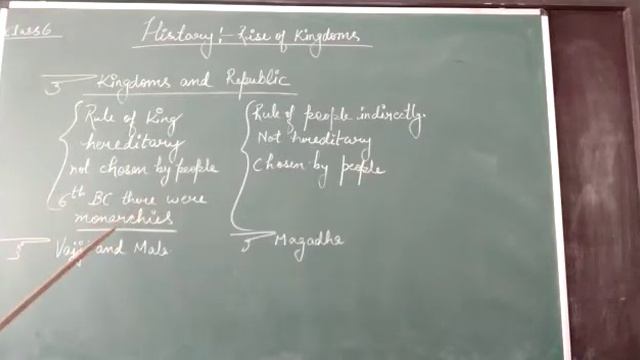 Class 6
History :- Rise of Kingdoms
Kingdoms and Republic
Rule of King
hereditary
not chosen by people
6th BC there were
monarchies
Rule of people indirectly.
Not hereditary
Chosen by people
Vajji and Mals
Magadha